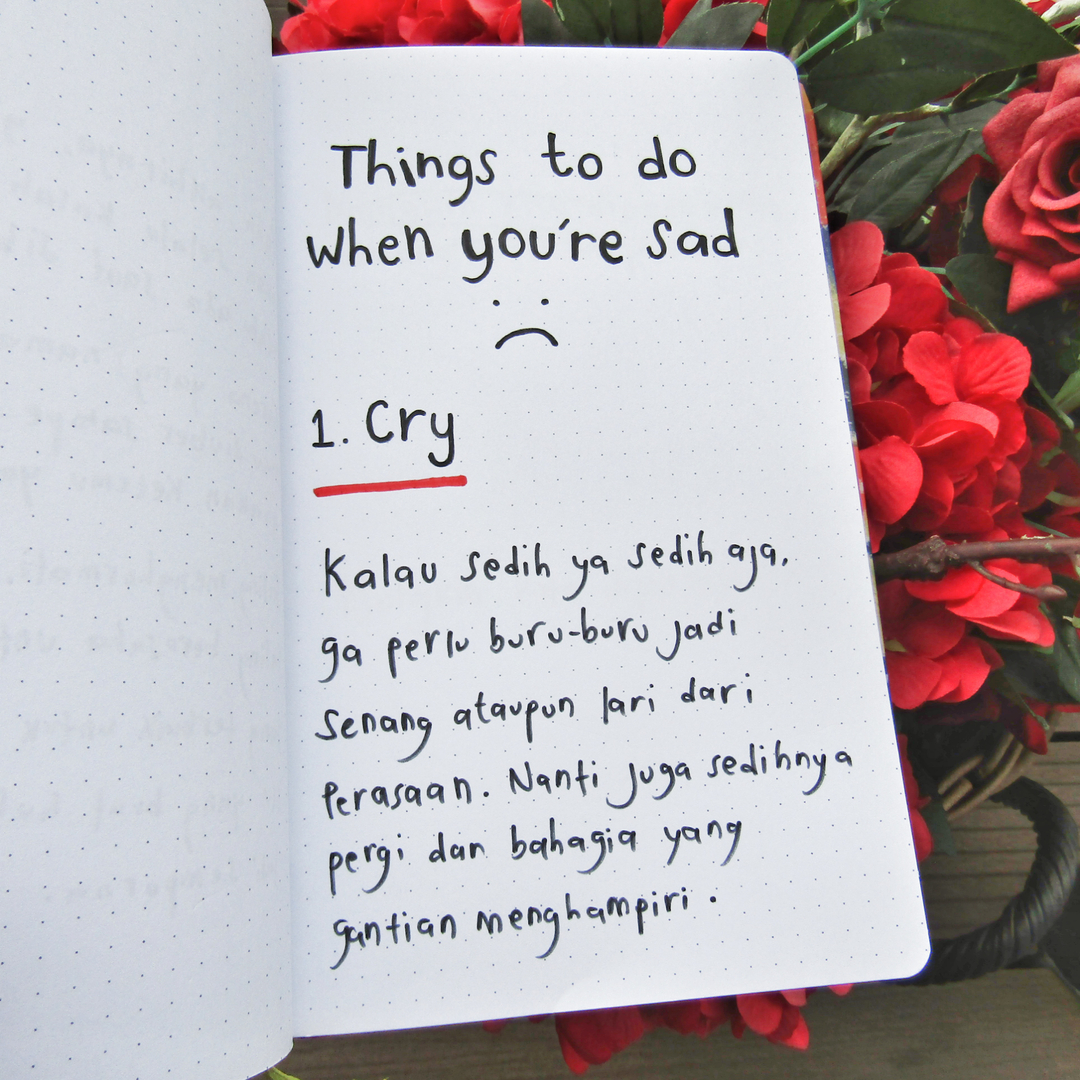 Things to do
When you're sad
1. Cry
Kalau sedih ya sedih aja,
ga perlu buru-buru jadi
senang ataupun lari dari
perasaan. Nanti juga sedihnya
pergi dan bahagia yang
gantian menghampiri.